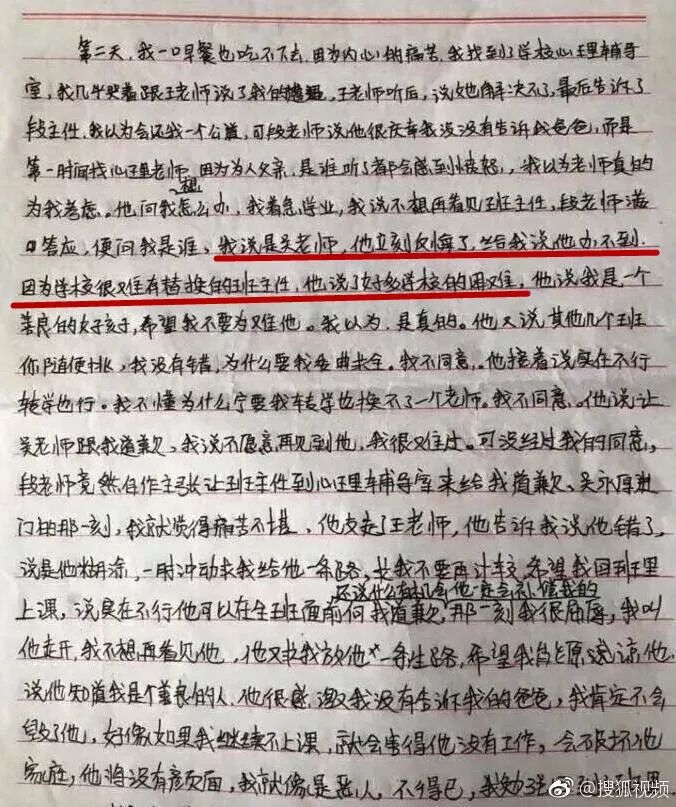 第二天,我一口早餐也吃不下去,因为内心的痛苦,我找到了学校心理辅导
室,我几乎哭着跟王老师说了我的遭遇,王老师听后,说她解决不了,最后告诉了
段主任,我以为会还我一个公道,可段老师说他很庆幸我没没有告诉我爸爸,而是
第一时间找心理老师,因为为人父亲,是谁听了都会感到愤怒,我以为老师真的
为我考虑。他问我想怎么办,我着急学业,我说不想再看见班主任,段老师满
口答应,便问我是谁,我说是吴老师,他立刻反悔了,给我说他办不到.
因为学校很难有替换的班主任,他说了好多学校的困难,他说我是一个
善良的好孩子,希望我不要为难他。我以为.是真的。他又说其他几个班
你随便挑,我没有错,为什么要我委曲求全。我不同意.他接着说实在不行
转学也行。我不懂为什么宁要我转学也换不了一个老师。我不同意.他说让
吴老师跟我道歉,我说不愿意再见到他,我很难过。可没经过我的同意,
段老师竟然自作主张让班主任到心理辅导室来给我道歉、吴永厚进
门的那一刻,我就觉得痛苦不堪.他支走了王老师,他告诉我说他错了,
说是他糊涂,一时冲动求我给他一条路,求我不要再计较,希望我回到班里
还说什么有机会他一定会补偿我的
上课,说实在不行他可以在全班面前向我道歉,那一刻我很屈辱,我叫
他走开,我不想再看见他,他又求我放他一条生路,希望我自愿原谅他.
说他知道我是个善良的人.他很感激我没有告诉我的爸爸,我肯定不会
毁了他,好像如果我继续不上课,就会害得他没有工作,会破坏他
家庭,他将没有颜面,我就像是恶人,不得已,我勉强
@搜狐视频